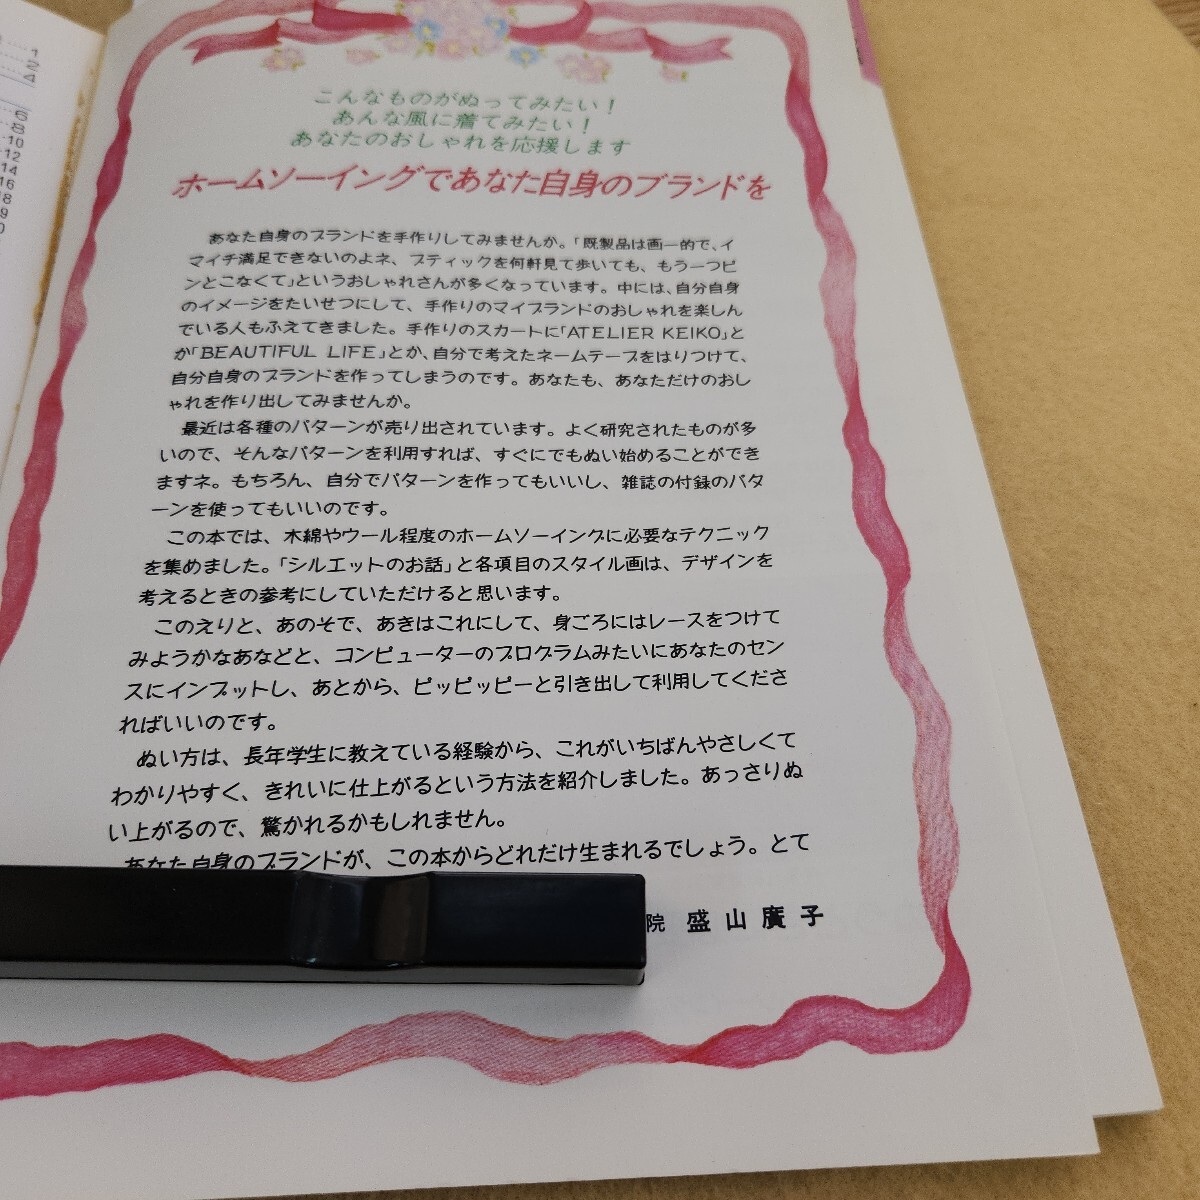 1
2
4
6
8
10
12
14
16
18
こんなものがぬってみたい！
あんな風に着てみたい！
あなたのおしゃれを応援します
ホームソーイングであなた自身のブランドを
あなた自身のブランドを手作りしてみませんか。「既製品は画一的で、イ
マイチ満足できないのよネ、ブティックを何軒見て歩いても、もう一つピ
ンとこなくて」というおしゃれさんが多くなっています。中には、自分自身
のイメージをたいせつにして、手作りのマイブランドのおしゃれを楽しん
でいる人もふえてきました。手作りのスカートに「ATELIER KEIKO」と
か「BEAUTIFUL LIFE」とか、自分で考えたネームテープをはりつけて、
自分自身のブランドを作ってしまうのです。あなたも、あなただけのおし
ゃれを作り出してみませんか。
最近は各種のパターンが売り出されています。よく研究されたものが多
いので、そんなパターンを利用すれば、すぐにでもぬい始めることができ
ますネ。もちろん、自分でパターンを作ってもいいし、雑誌の付録のパタ
ーンを使ってもいいのです。
この本では、木綿やウール程度のホームソーイングに必要なテクニック
を集めました。「シルエットのお話」と各項目のスタイル画は、デザインを
考えるときの参考にしていただけると思います。
このえりと、あのそで、あきはこれにして、身ごろにはレースをつけて
みようかなあなどと、コンピューターのプログラムみたいにあなたのセン
スにインプットし、あとから、ピッピッピーと引き出して利用してくださ
ればいいのです。
ぬい方は、長年学生に教えている経験から、これがいちばんやさしくて
わかりやすく、きれいに仕上がるという方法を紹介しました。あっさりぬ
い上がるので、驚かれるかもしれません。
あなた自身のブランドが、この本からどれだけ生まれるでしょう。とて
院 盛山廣子